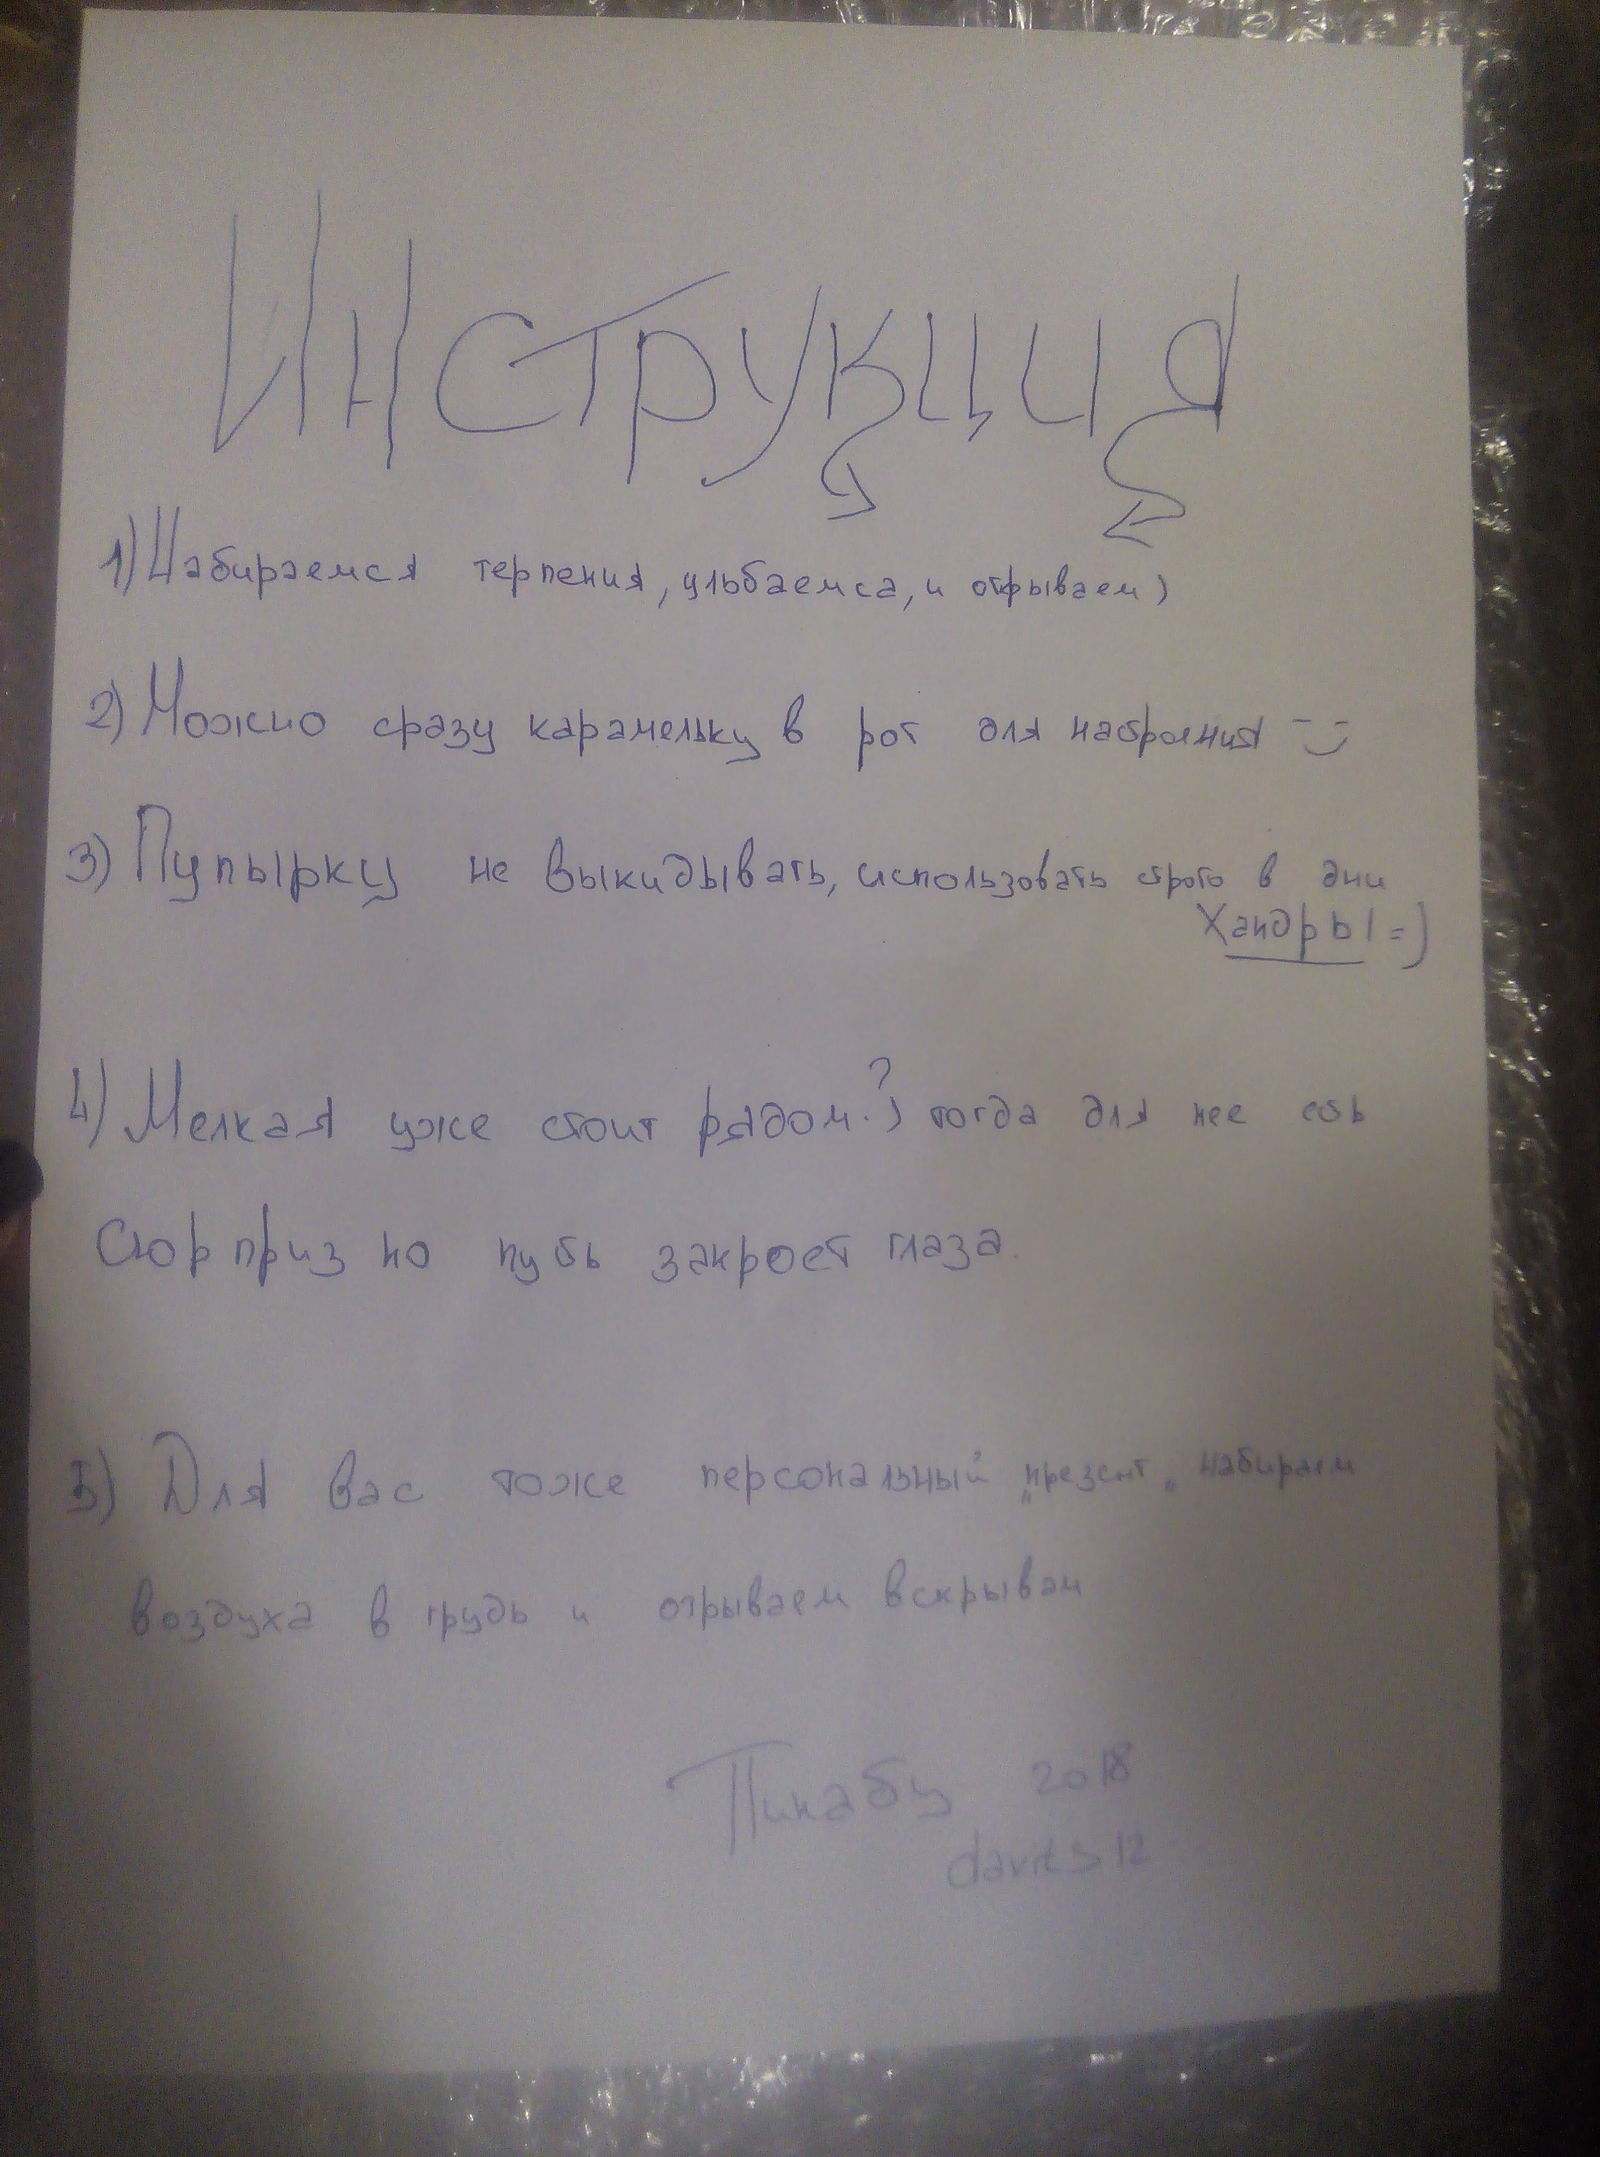 Инструкция
1) Набираемся терпения, улыбаемся, и открываем)
2) Можно сразу карамельку в рот для настроения =)
3) Пупырку не выкидывать, использовать строго в дни
Хандры =)
4) Мелкая уже стоит рядом.? тогда для нее есть
Сюрприз но пусть закроет глаза.
5) Для Вас тоже персональный „презент„ набираем
воздуха в грудь и отрываем вскрывам
Пикабу 2018
davits12